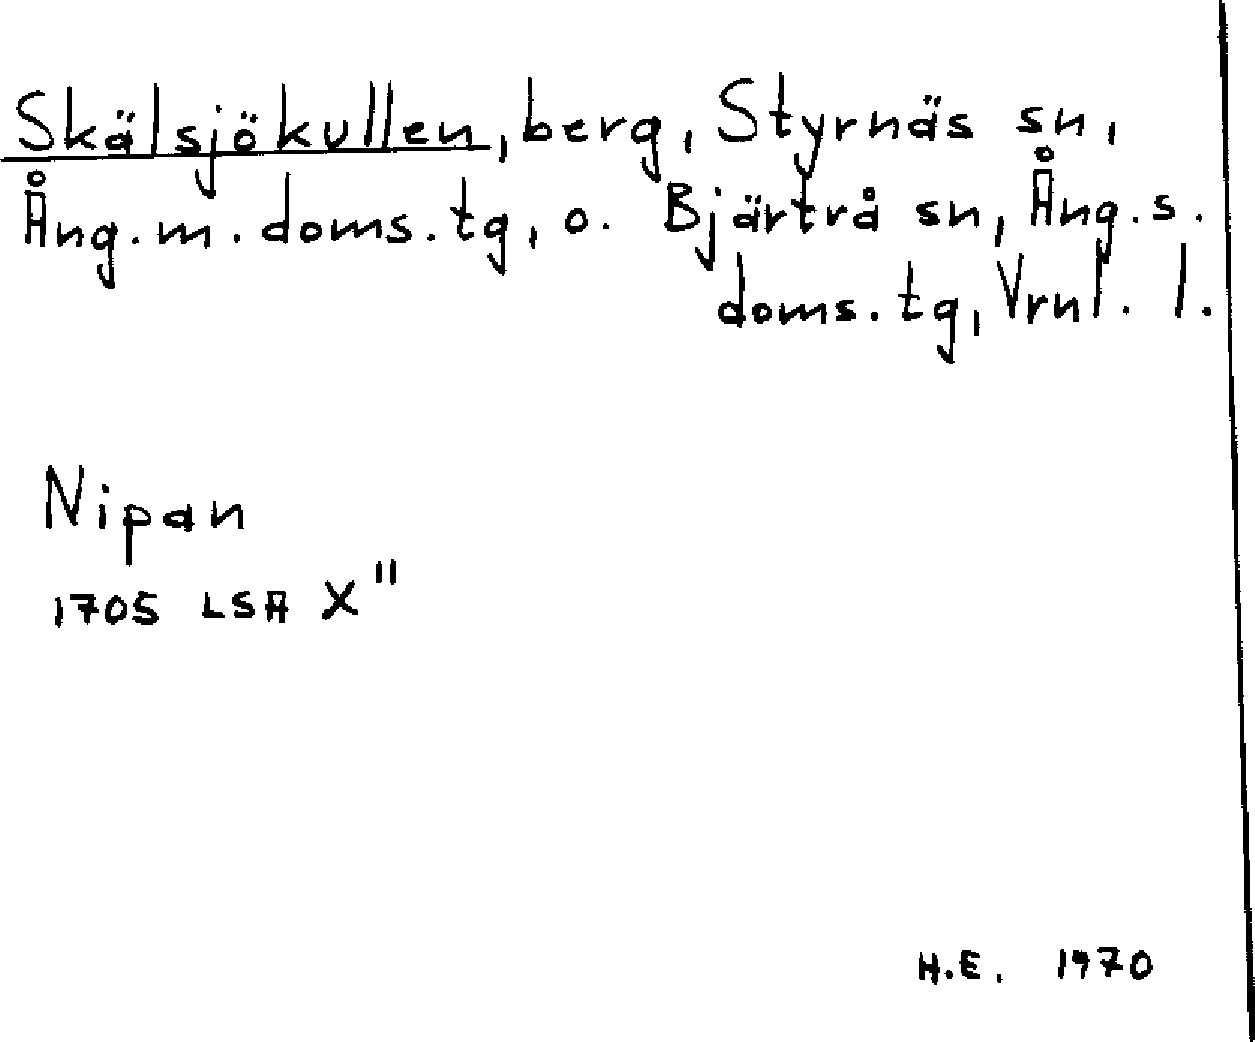 Skälsjökullen, berg, Styrnäs sn,
Ång. m. doms. tg, o. Bjärtrå sn, Ång. s.
doms. tg, Vrnl. l.
Nipan
1705 LSA X"
H.E. 1970